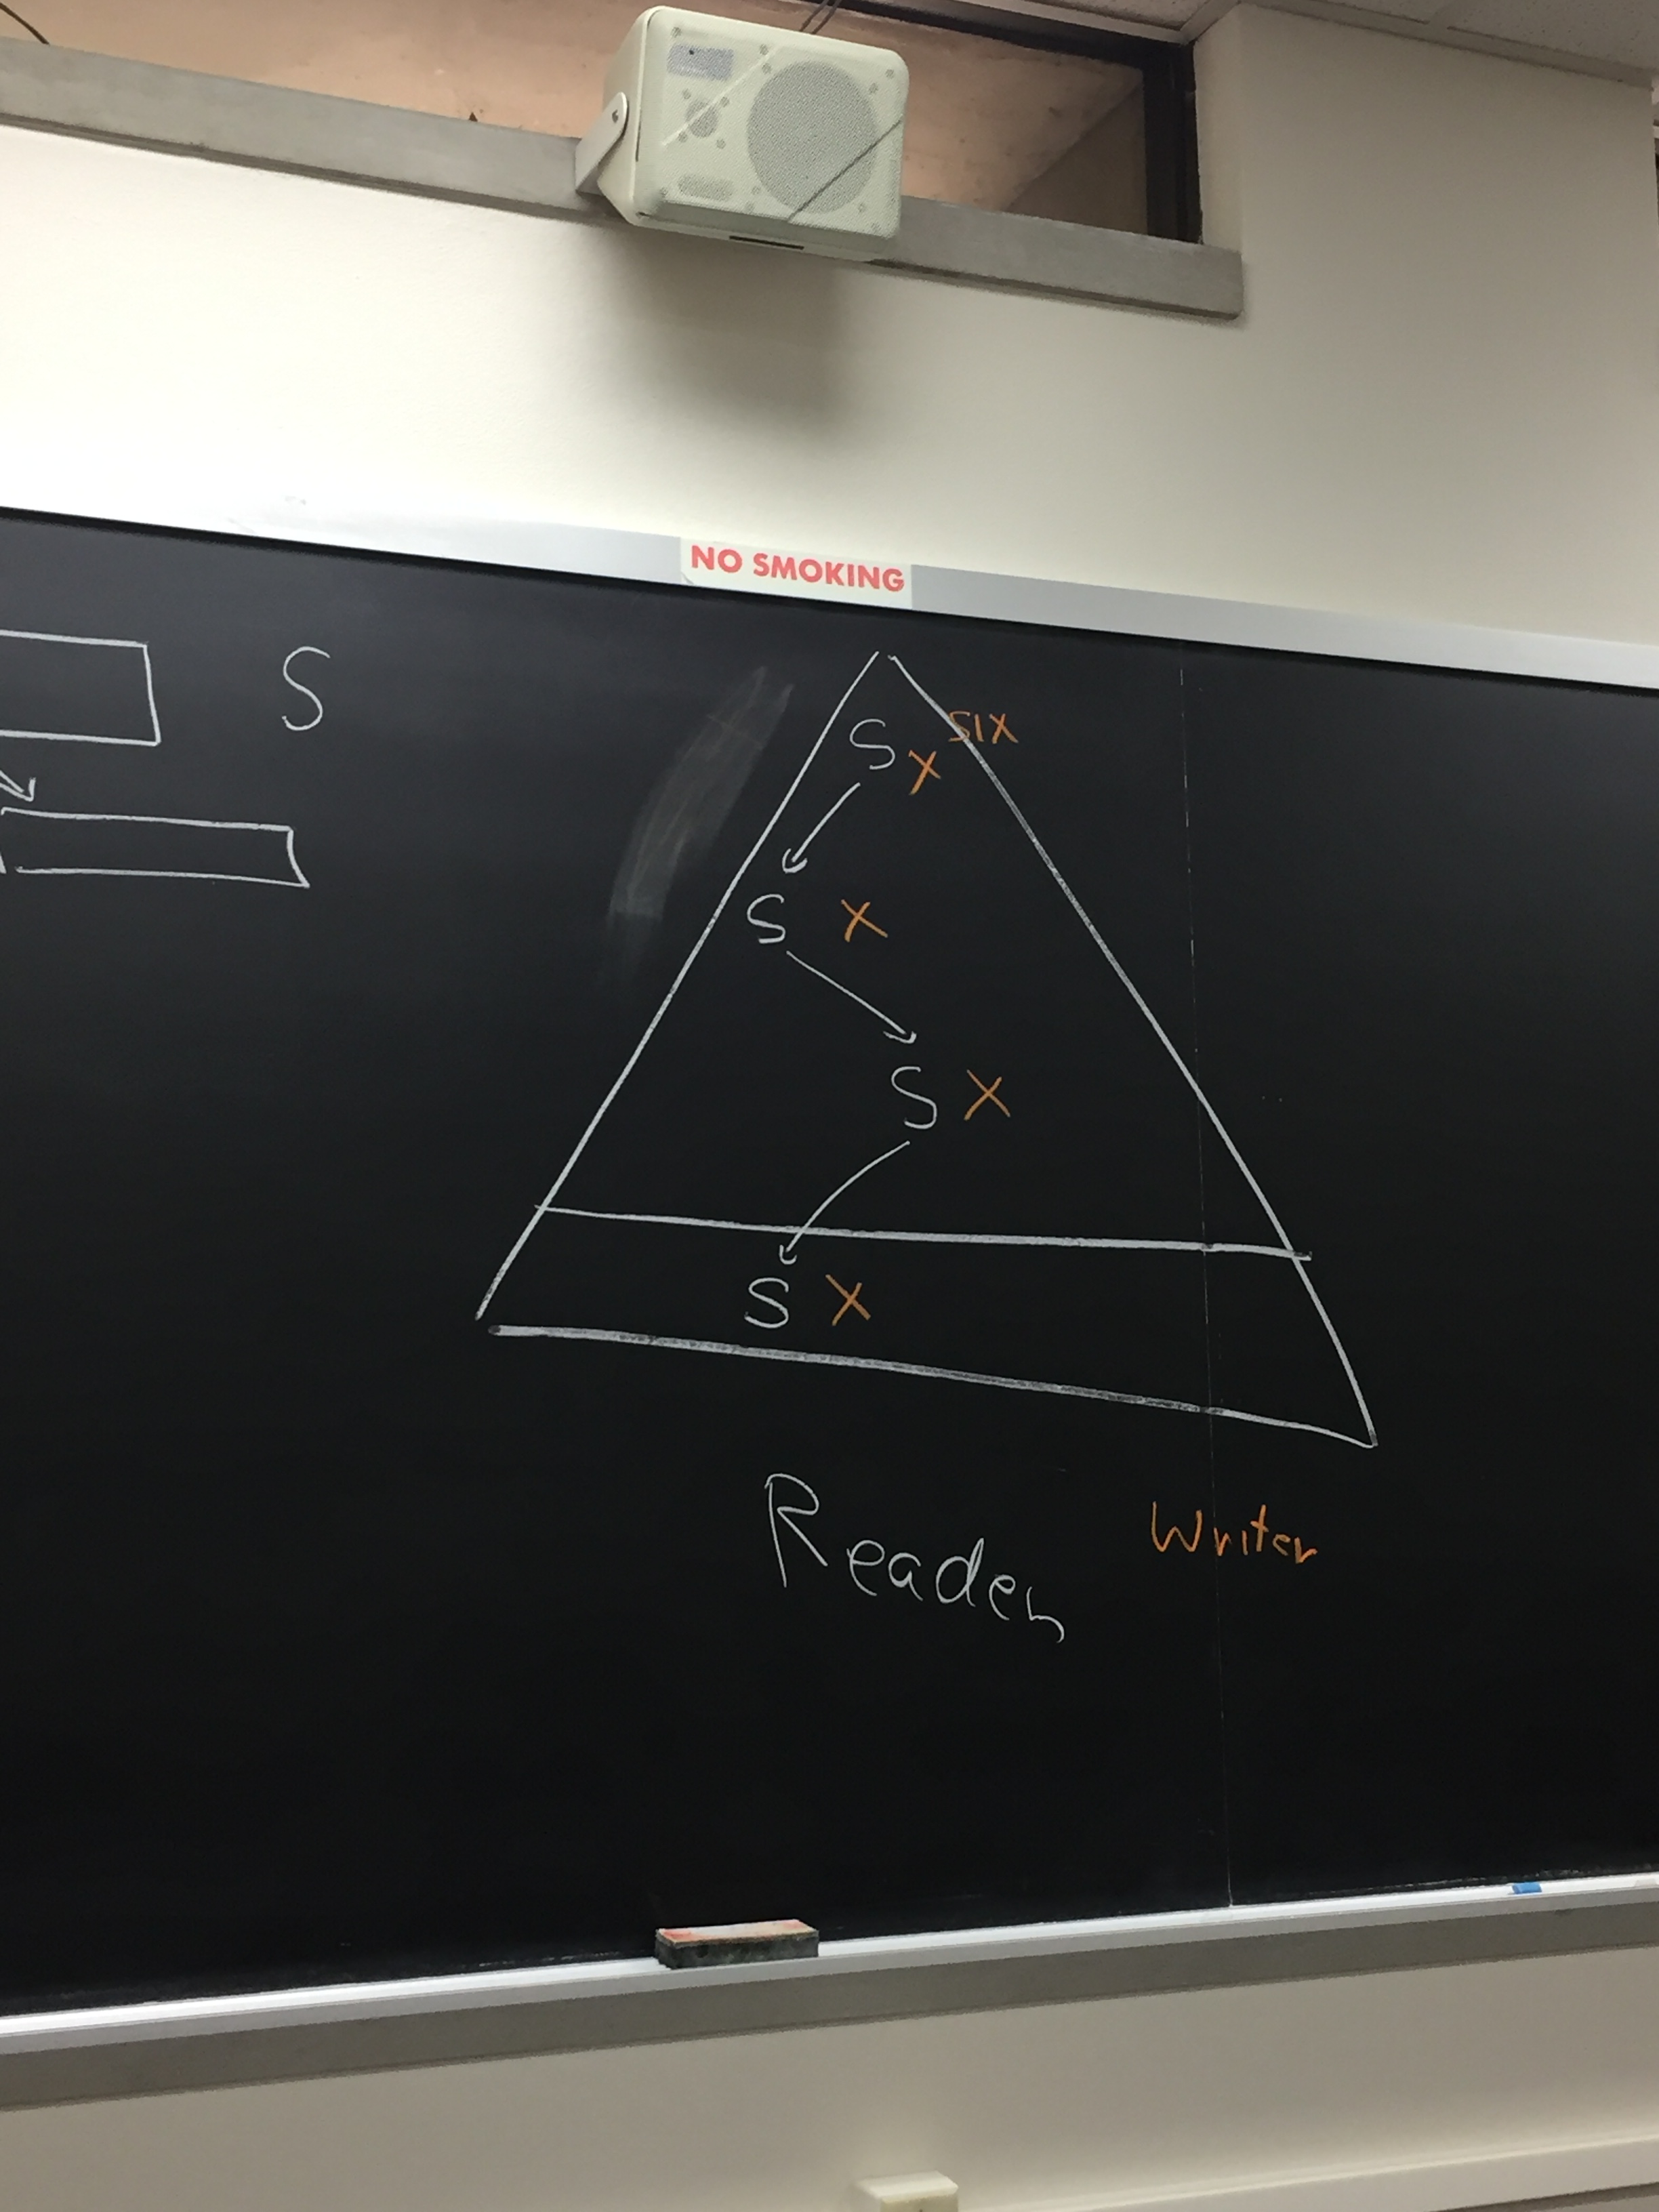 NO SMOKING
S
S X SIX
S X
S X
S X
Reader
Writer